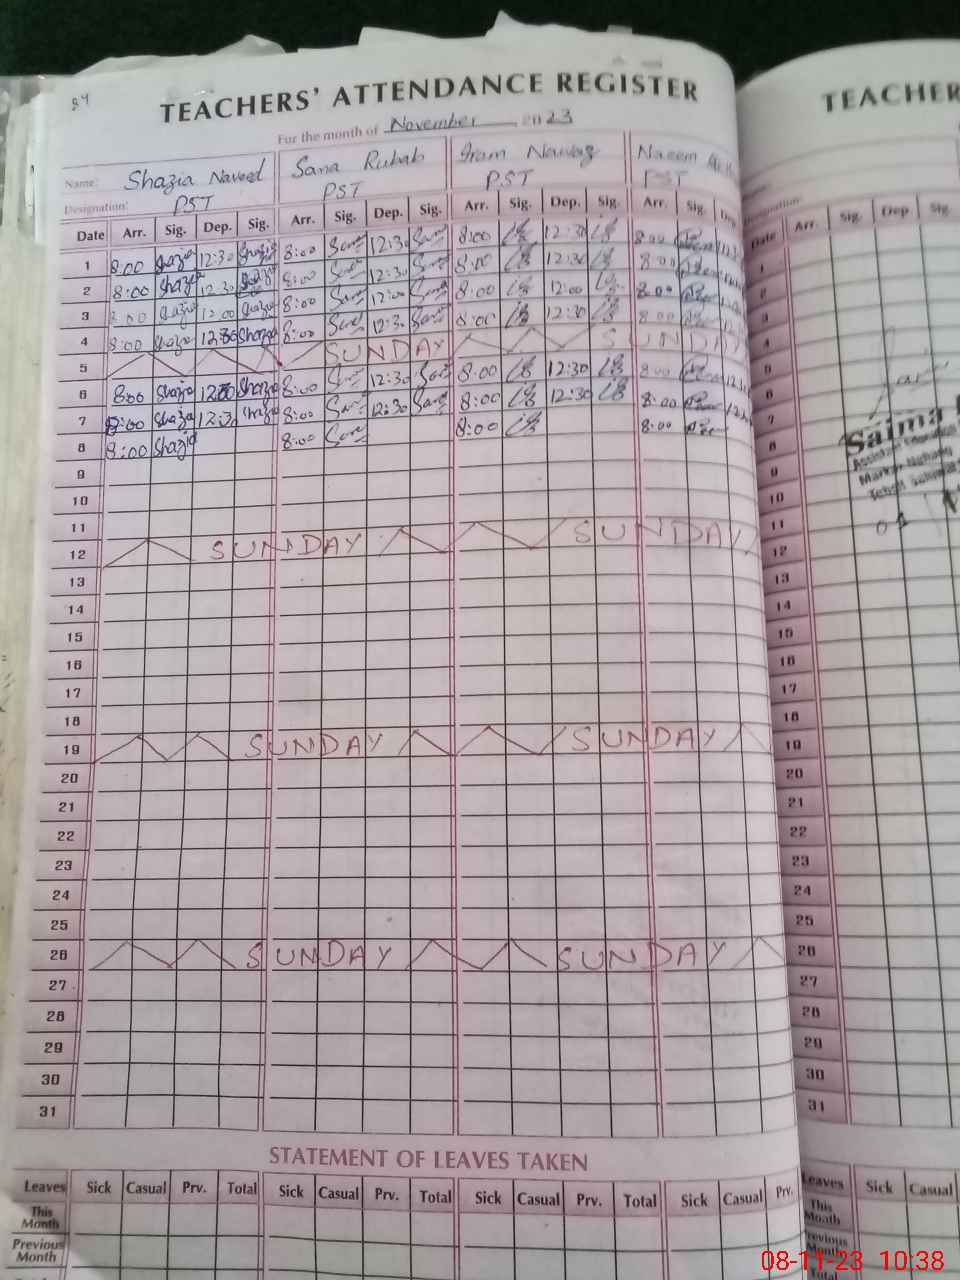 84
TEACHERS' ATTENDANCE REGISTER
For the month of November 2023
Name: Shazia Naveed Sana Rubab Iram Nawaz Naeem
Designation: PST PST PST PST
Date Arr. Sig. Dep. Sig. Arr. Sig. Dep. Sig. Arr. Sig. Dep. Sig. Arr. Sig. Dep
1 8:00 Shazia 12:30 Shazia 8:00 12:30 8:00 12:30 8:00
2 8:00 Shazia 12:30 Shazia 8:00 12:30 8:00 12:30 8:00
3 8:00 Shazia 12:00 Shazia 8:00 12:00 8:00 12:00 8:00
4 8:00 Shazia 12:30 Shazia 8:00 12:30 8:00 12:30 8:00
5 SUNDAY SUNDAY
6 8:00 Shazia 12:30 Shazia 8:00 12:30 8:00 12:30 8:00
7 8:00 Shazia 12:30 Shazia 8:00 12:30 8:00 12:30 8:00
8 8:00 Shazia 8:00 8:00 8:00
9
10
11
12 SUNDAY SUNDAY
13
14
15
16
17
18
19 SUNDAY SUNDAY
20
21
22
23
24
25
26 SUNDAY SUNDAY
27
28
29
30
31
STATEMENT OF LEAVES TAKEN
Leaves Sick Casual Prv. Total Sick Casual Prv. Total Sick Casual Prv. Total Sick Casual Prv.
This Month
Previous Month
TEACHER
Designation:
Date Arr. Sig. Dep Sig.
1
2
3
4
5
6
7
8
9
10
11
12
13
14
15
16
17
18
19
20
21
22
23
24
25
26
27
28
29
30
31
Saima
Leaves Sick Casual
This Month
Previous Month
Total
08-11-23 10:38